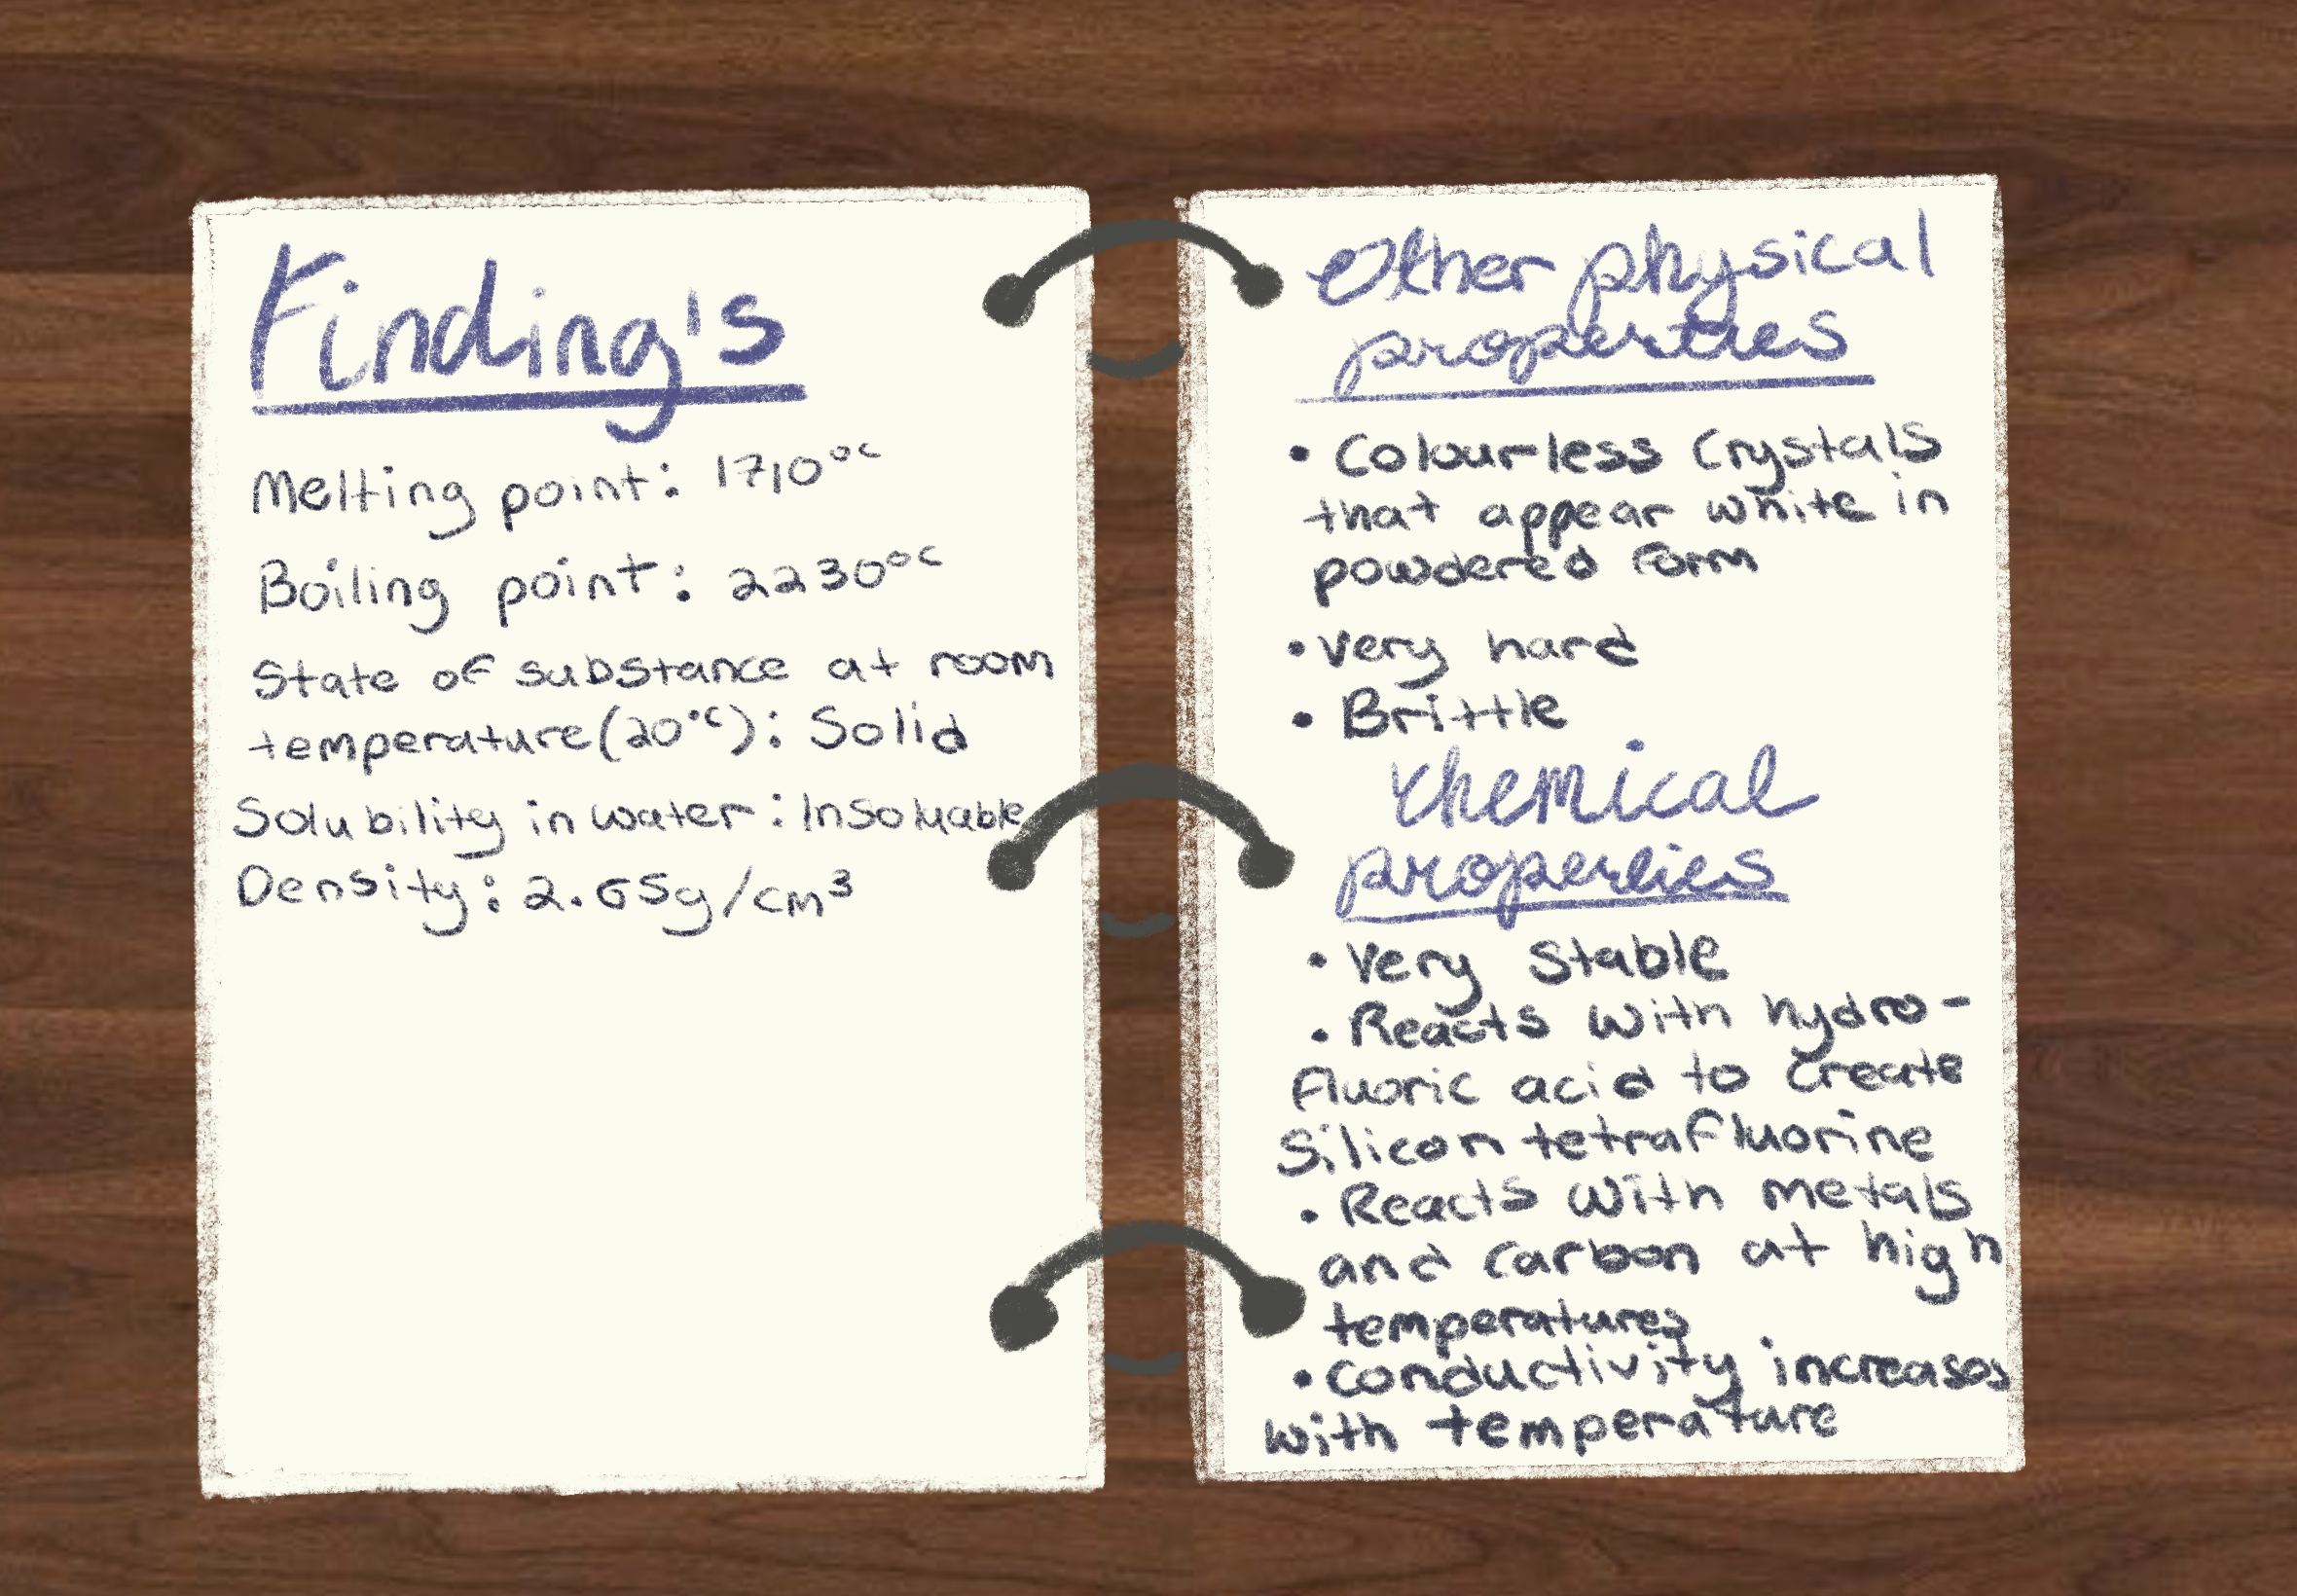 Finding's
Melting point: 1710°C
Boiling point: 2230°C
State of substance at room
temperature (20°C): Solid
Solubility in water: Insoluable
Density: 2.65g/cm³
Other physical
properties
• Colourless Crystals
that appear white in
powdered form
• Very hard
• Brittle
Chemical
properties
• Very Stable
• Reacts with hydro-
fluoric acid to create
Silicon tetrafluorine
• Reacts with metals
and carbon at high
temperatures
• Conductivity increases
with temperature